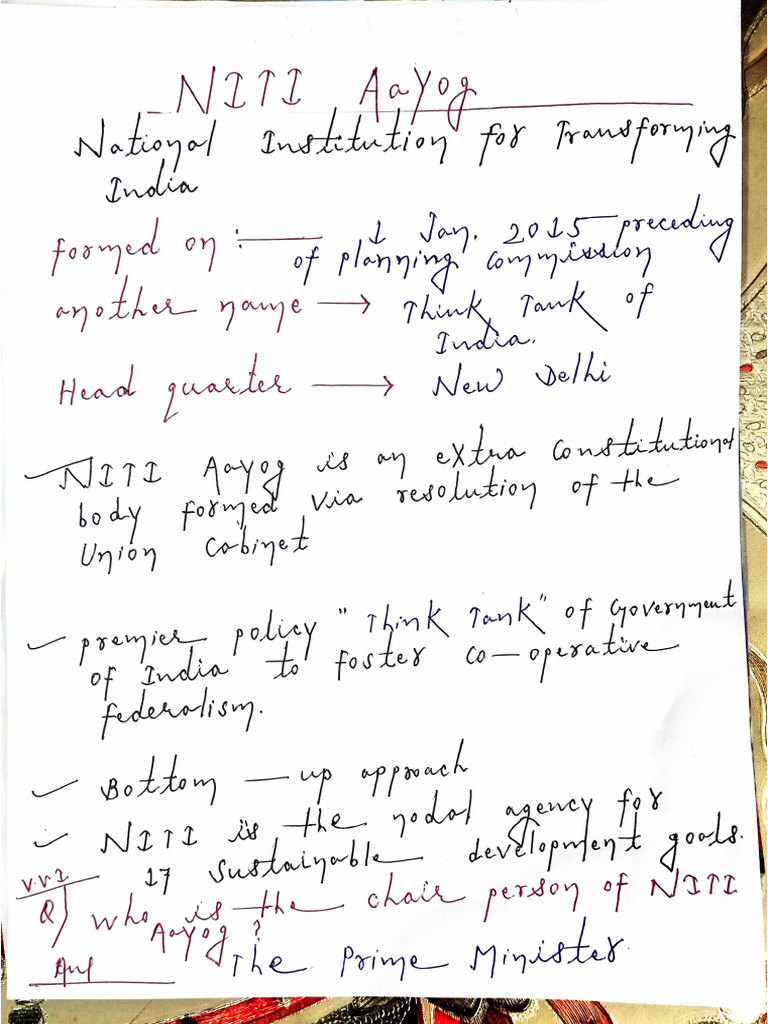 NITI AaYog
National Institution for Transforming
India
formed on :— 1 Jan. 2015 preceding
of planning Commission
another name → Think Tank of
India.
Head quarter → New Delhi
NITI Aayog is an extra Constitutional
body formed via resolution of the
Union Cabinet
premier policy "Think Tank" of Government
of India to foster co-operative
federalism.
Bottom — up approach
NITI is the nodal agency for
17 Sustainable development goals.
V.V.I
Q) who is the chair person of NITI
Aayog ?
Ans The Prime Minister.